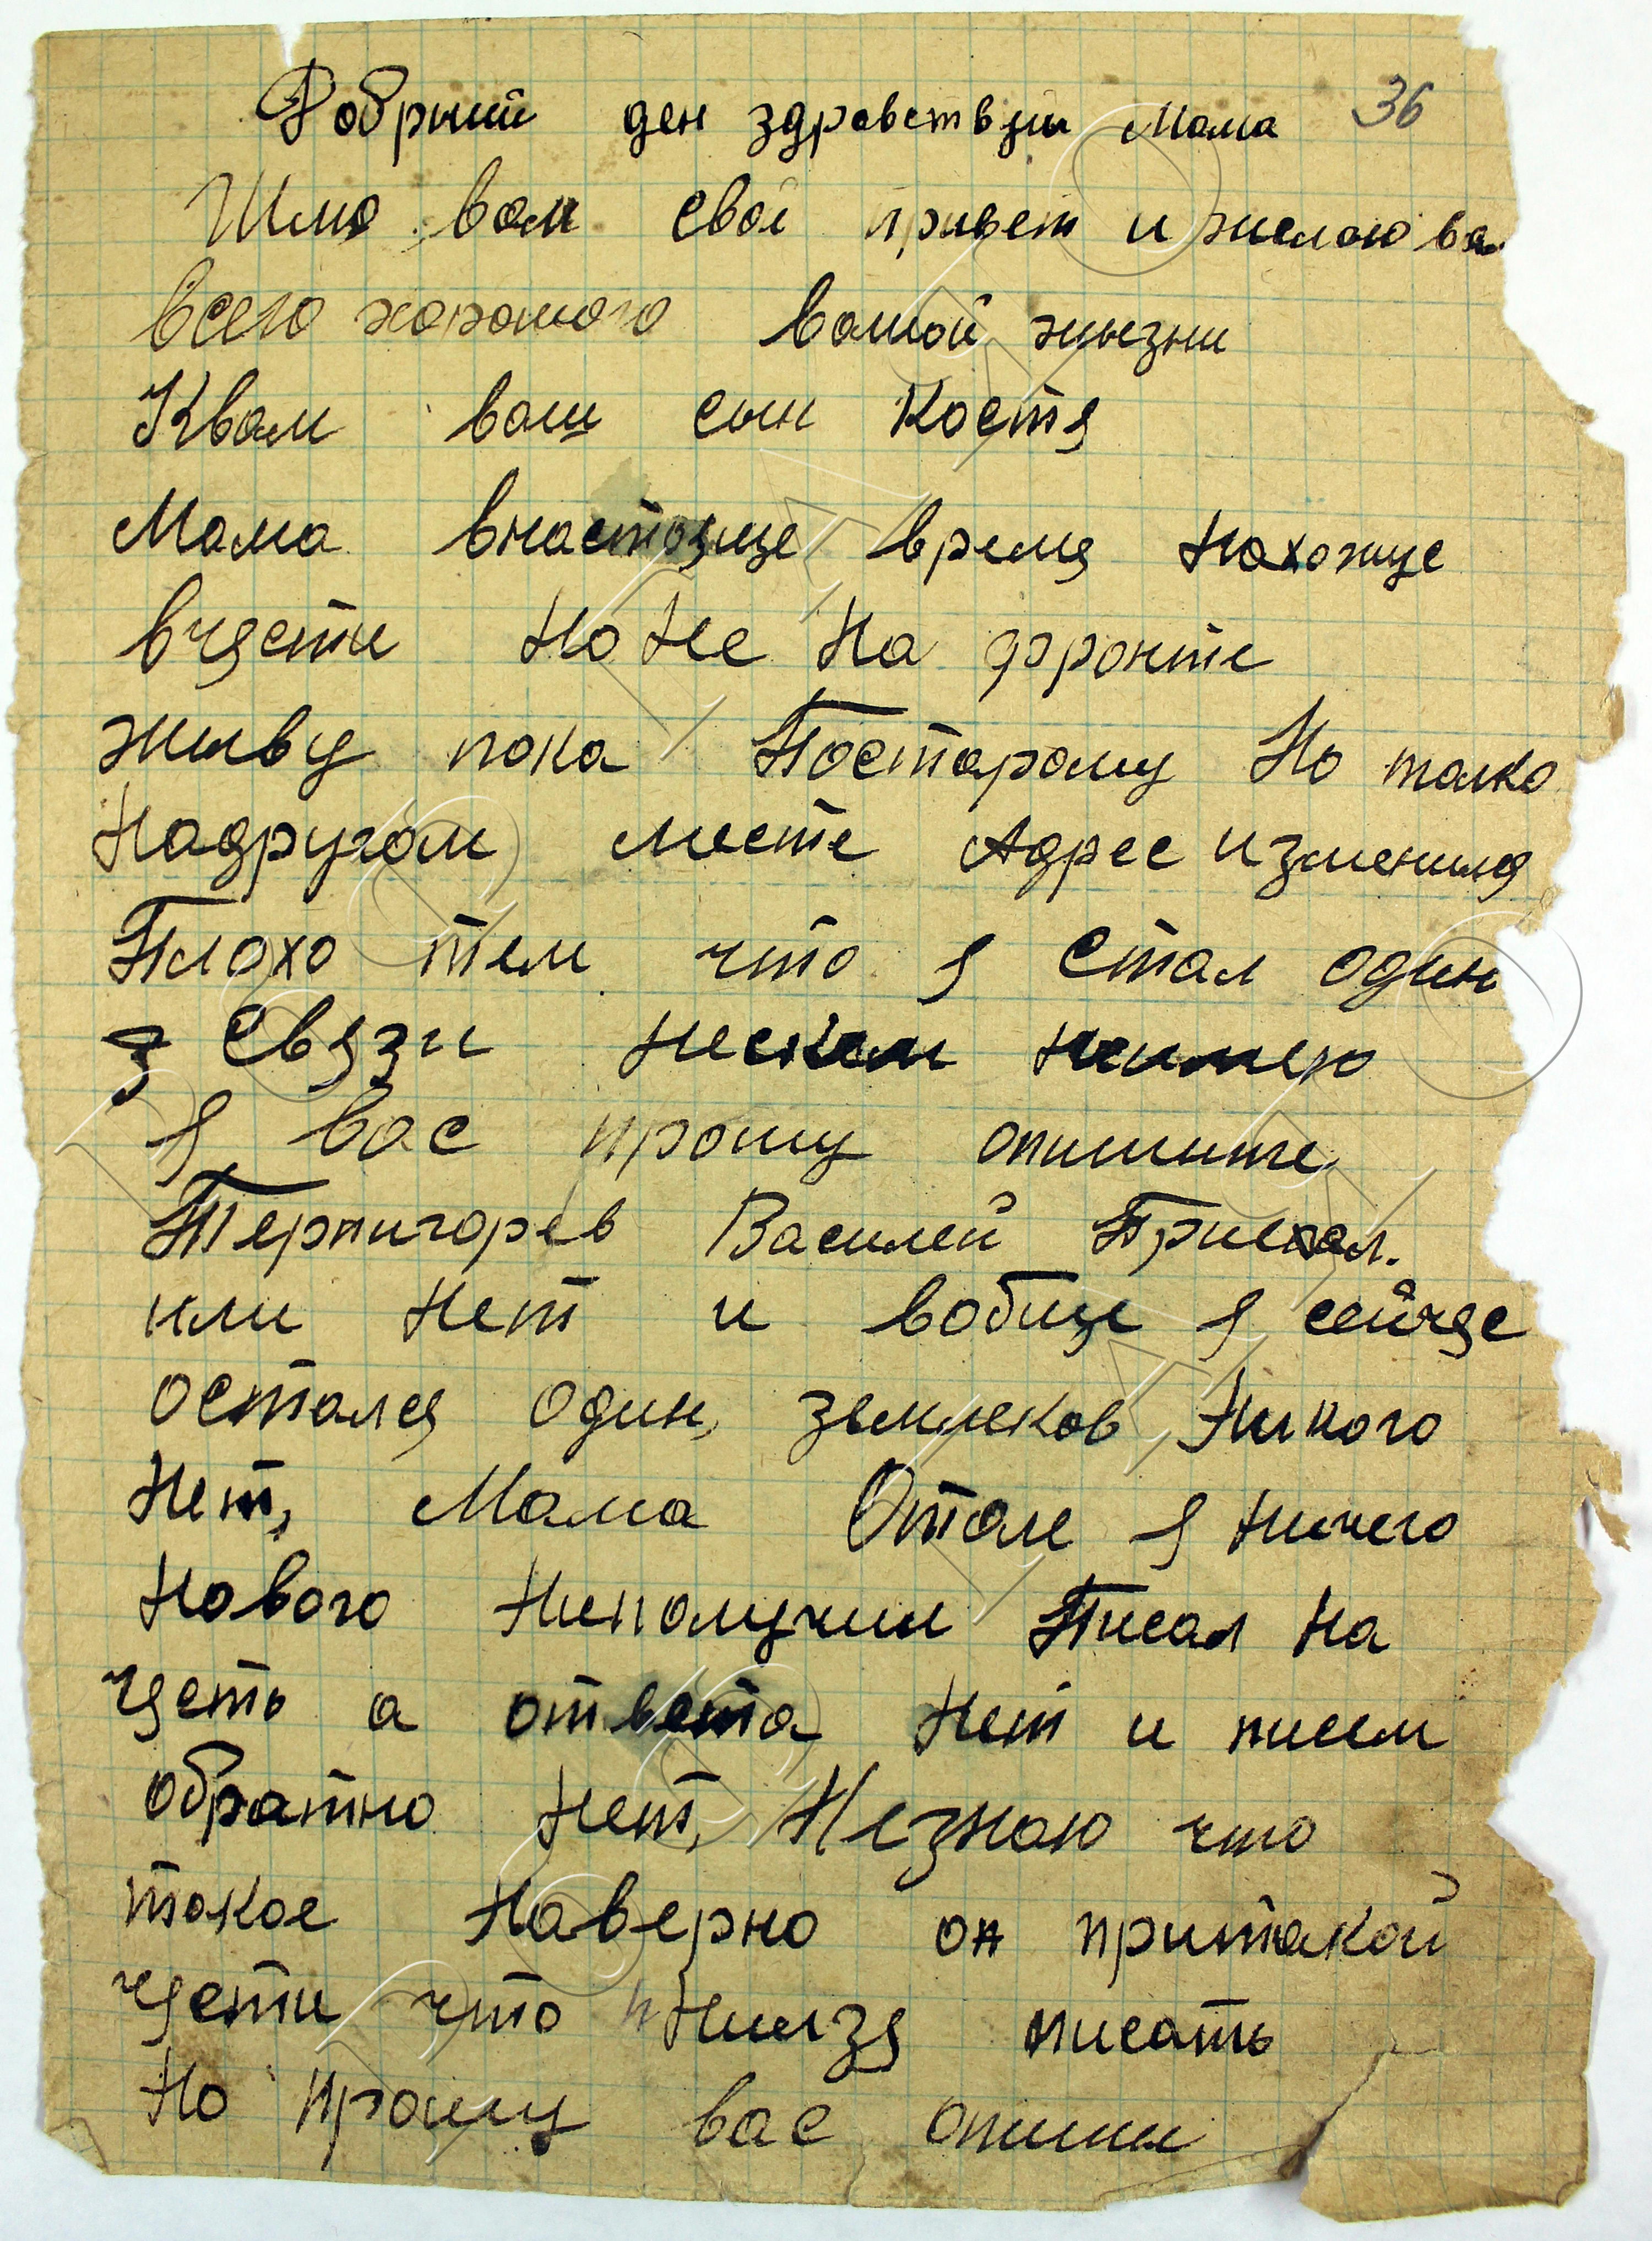 Добрый ден здравствуй Мама 36
Шлю вам свой привет и желаю ва
всего хорошого вашой жызни
Квам ваш сын Костя
Мама внастояще время нахожус
вчясти но не на фронте
жыву пока Постарому Но толко
Надругом месте Адрес изменилд
Плохо тем что я стал один
з Связи нескем неимею
я вас прошу опишите
Терпигорев Василей Приехал.
или нет и вобще я сейчяс
остался один, землеков Никого
Нет, Мама Отоле я ничего
Нового Неполучил Писал на
чясть а ответа нет и писем
обратно нет, Незнаю что
такое Наверно он притакой
чясти что нилзя писать
Но прошу вас опиши